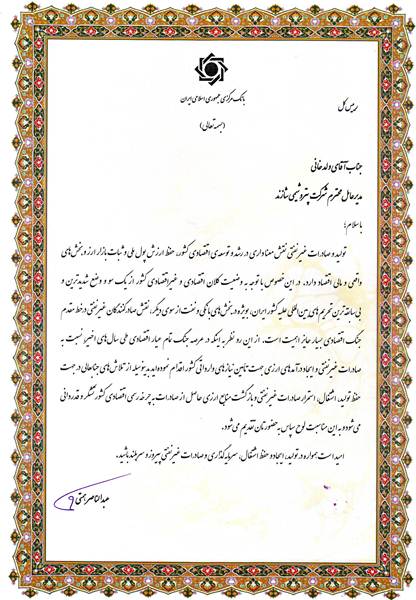 رییس کل
بانک مرکزی جمهوری اسلامی ایران
(بسمه تعالی)
جناب آقای ولدخانی
مدیرعامل محترم شرکت پتروشیمی شازند
با سلام؛
تولید و صادرات غیرنفتی نقش معناداری در رشد و توسعه‌ی اقتصادی کشور، حفظ ارزش پول ملی و ثبات بازار ارز و بخش‌های
واقعی و مالی اقتصاد دارد. در این خصوص با توجه به وضعیت کلان اقتصادی و غیراقتصادی کشور از یک سو و وضع شدیدترین و
بی‌سابقه‌ترین تحریم‌های بین‌المللی علیه کشور ایران، بویژه در بخش‌های بانکی و نفت از سوی دیگر، نقش صادرکنندگان غیرنفتی در خط مقدم
جنگ اقتصادی بسیار حائز اهمیت است. از این رو نظر به اینکه در عرصه جنگ تمام عیار اقتصادی طی سال‌های اخیر نسبت به
صادرات غیرنفتی و ایجاد درآمدهای ارزی جهت تأمین نیازهای وارداتی کشور اقدام نموده‌اید بدینوسیله از تلاش‌های جنابعالی در جهت
حفظ تولید، اشتغال، استمرار صادرات غیرنفتی و بازگشت منابع ارزی حاصل از صادرات به چرخه رسمی اقتصادی کشور تشکر و قدردانی
می‌شود و به این مناسبت لوح سپاس به حضورتان تقدیم می‌شود.
امید است همواره در تولید، ایجاد و حفظ اشتغال، سرمایه‌گذاری و صادرات غیرنفتی پیروز و سربلند باشید.
عبدالناصر همتی